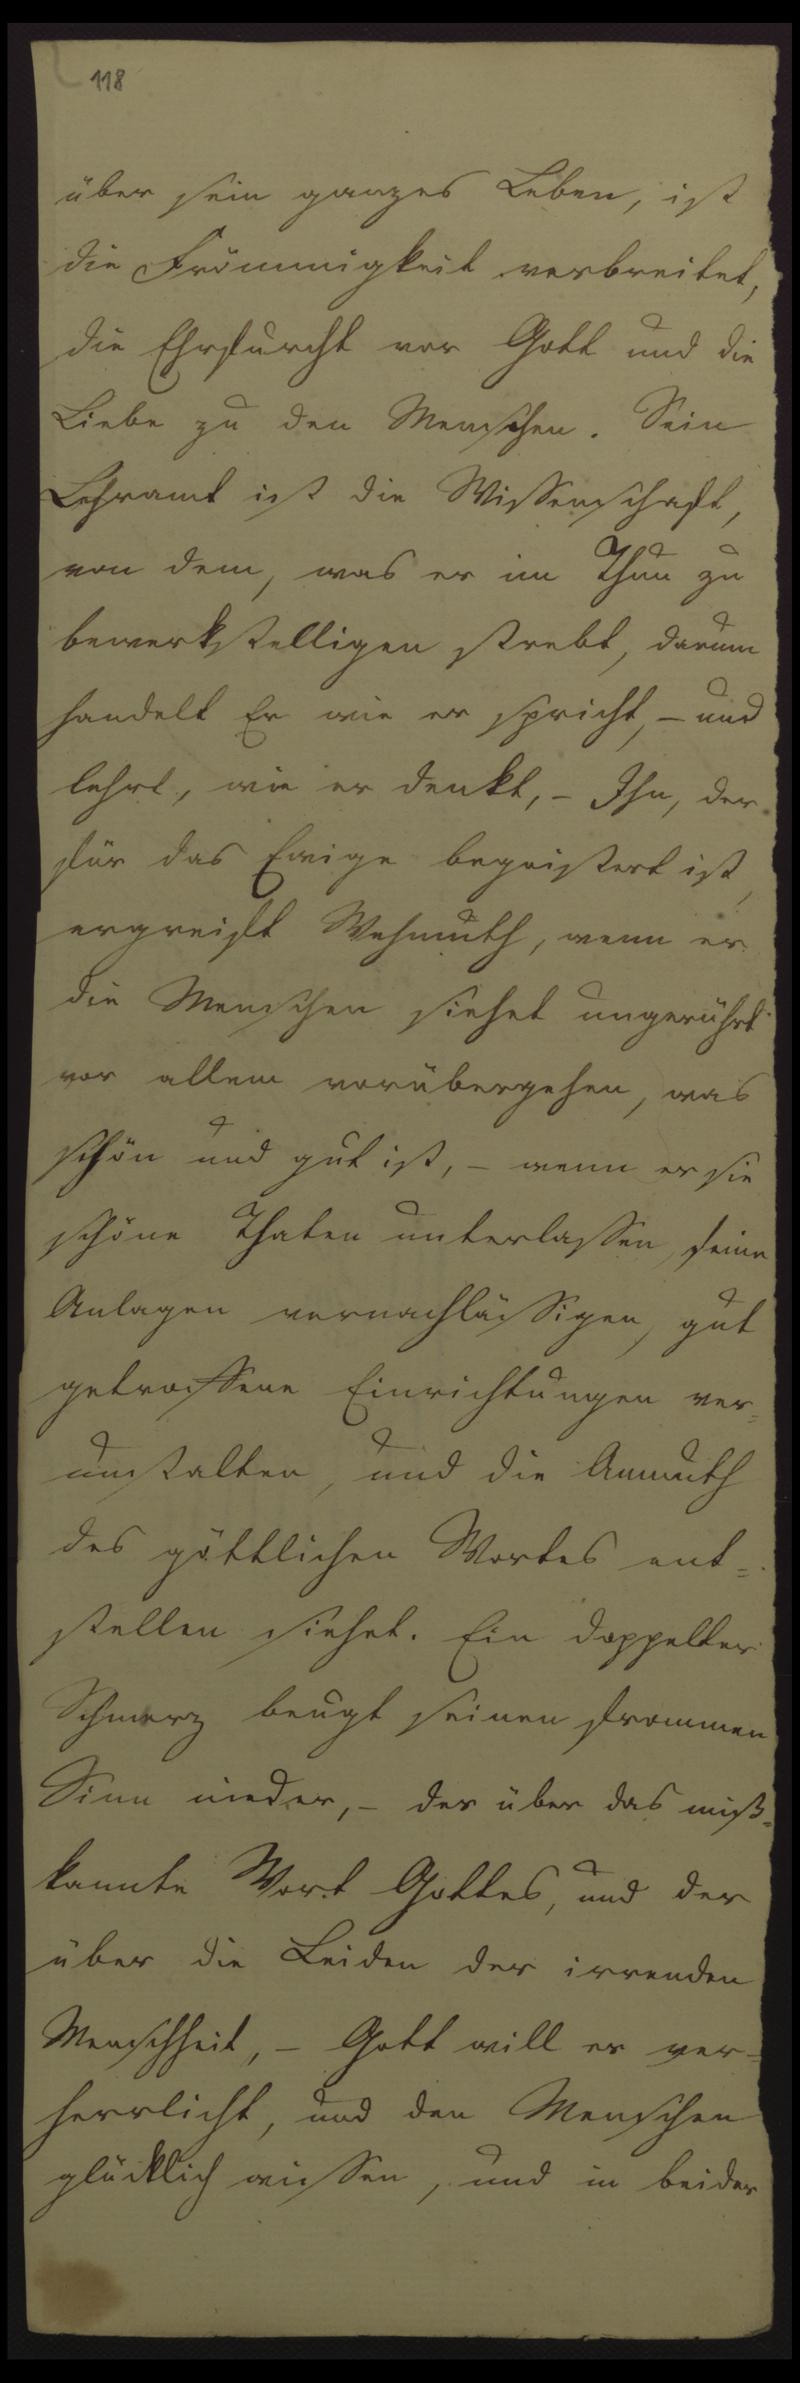 118
über sein ganzes Leben, ist
die Frömmigkeit verbreitet,
die Ehrfurcht vor Gott und die
Liebe zu den Menschen. Sein
Lehramt ist die Wissenschaft,
von dem, was er im Thun zu
bewerkstelligen strebt, darum
handelt Er wie er spricht, – und
lehrt, wie er denkt, – Ihn, der
für das Ewige begeistert ist,
ergreift Wehmuth, wenn er
die Menschen siehet ungerührt
vor allem vorübergehen, was
schön und gut ist, – wenn er sie
schöne Thaten unterlassen, feine
Anlagen vernachläßigen, gut
getroffene Einrichtungen ver=
unstalten, und die Anmuth
des göttlichen Wortes ent=
stellen siehet. Ein doppelter
Schmerz beugt seinen frommen
Sinn nieder, – der über das miß=
kannte Wort Gottes, und der
über die Leiden der irrenden
Menschheit, – Gott will er ver=
herrlicht, und den Menschen
glücklich wissen, und in beider